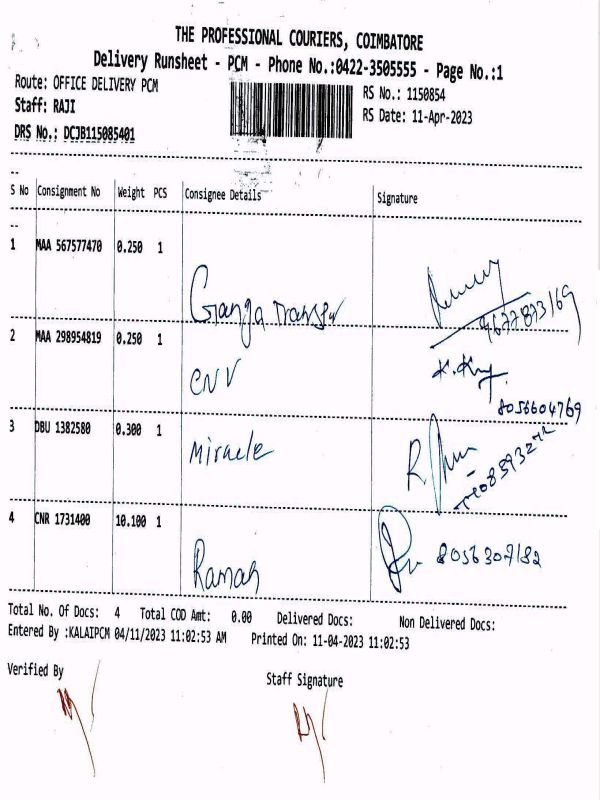 THE PROFESSIONAL COURIERS, COIMBATORE
Delivery Runsheet - PCM - Phone No.:0422-3505555 - Page No.:1
Route: OFFICE DELIVERY PCM
RS No.: 1150854
Staff: RAJI
RS Date: 11-Apr-2023
DRS No.: DCJB115085401
S No Consignment No Weight PCS Consignee Details Signature
1 MAA 567577470 0.250 1
Ganga Transfer
9677873169
2 MAA 298954819 0.250 1
CNV
K.
8056604769
3 DBU 1382580 0.300 1
Miracle
R
4 CNR 1731400 10.100 1
8056307182
Raman
Total No. Of Docs: 4 Total COD Amt: 0.00 Delivered Docs: Non Delivered Docs:
Entered By :KALAIPCM 04/11/2023 11:02:53 AM Printed On: 11-04-2023 11:02:53
Verified By
Staff Signature